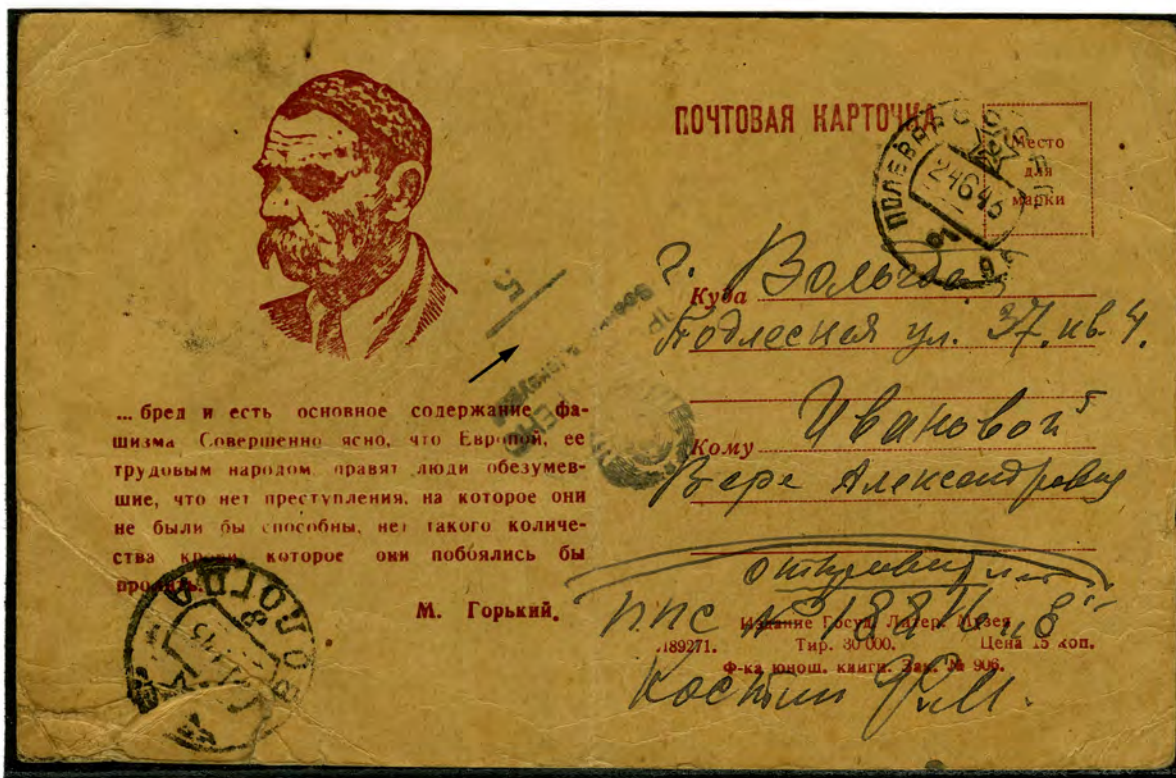 ПОЧТОВАЯ КАРТОЧКА
Место
для
марки
ПОЛЕВАЯ
24 6 43
г. Вологда
Куда
Подлесная ул. 37. кв. 4.
Кому
Ивановой
Вере Александровне
5
... бред и есть основное содержание фа-
шизма Совершенно ясно, что Европой, ее
трудовым народом правят люди обезумев-
шие, что нет преступления, на которое они
не были бы способны, нет такого количе-
ства крови которое они побоялись бы
пролить.
М. Горький.
ВОЛОГДА
ППС № 18876 "В"
Издание Госуд. Литер. Музея
Л89271. Тир. 30 000. Цена 15 коп.
Ф-ка юнош. книги. Зак. № 906.
Костин